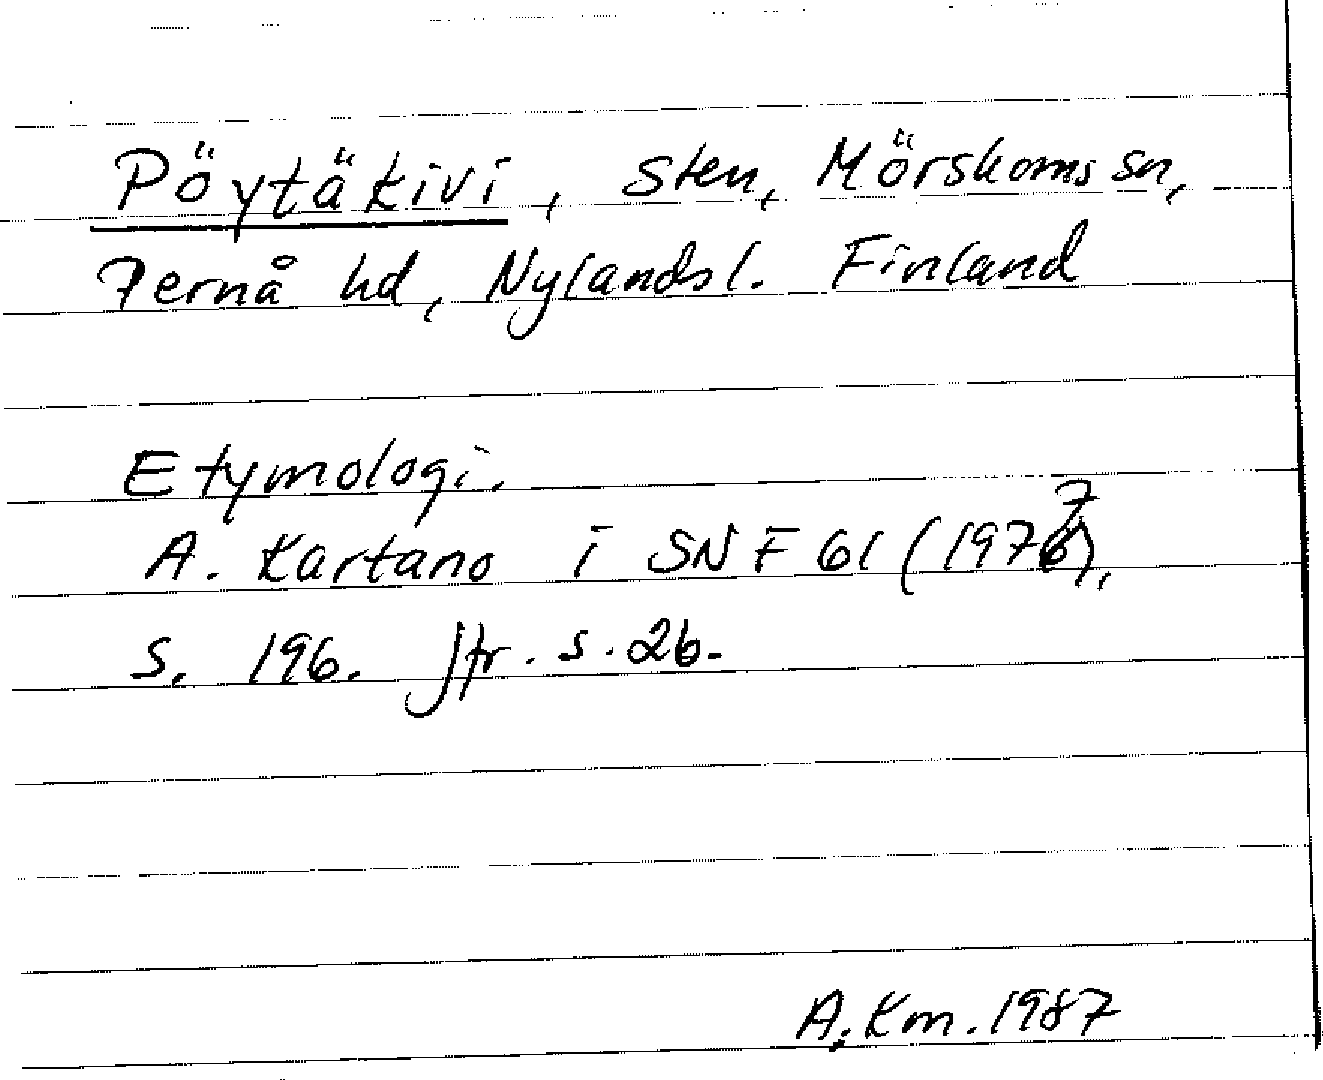 Pöytäkivi, sten, Mörskoms sn,
Pernå hd, Nylands l. Finland
Etymologi.
A. Kartano i SNF 61 (1977),
s. 196. Jfr. s. 26.
A. Km. 1987